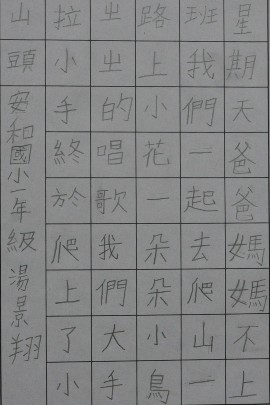 星期天爸爸媽媽不上
班我們一起去爬山一
路上小花一朵朵小鳥
出出的唱歌我們大手
拉小手終於爬上了小
山頭
安和國小一年級 湯景翔